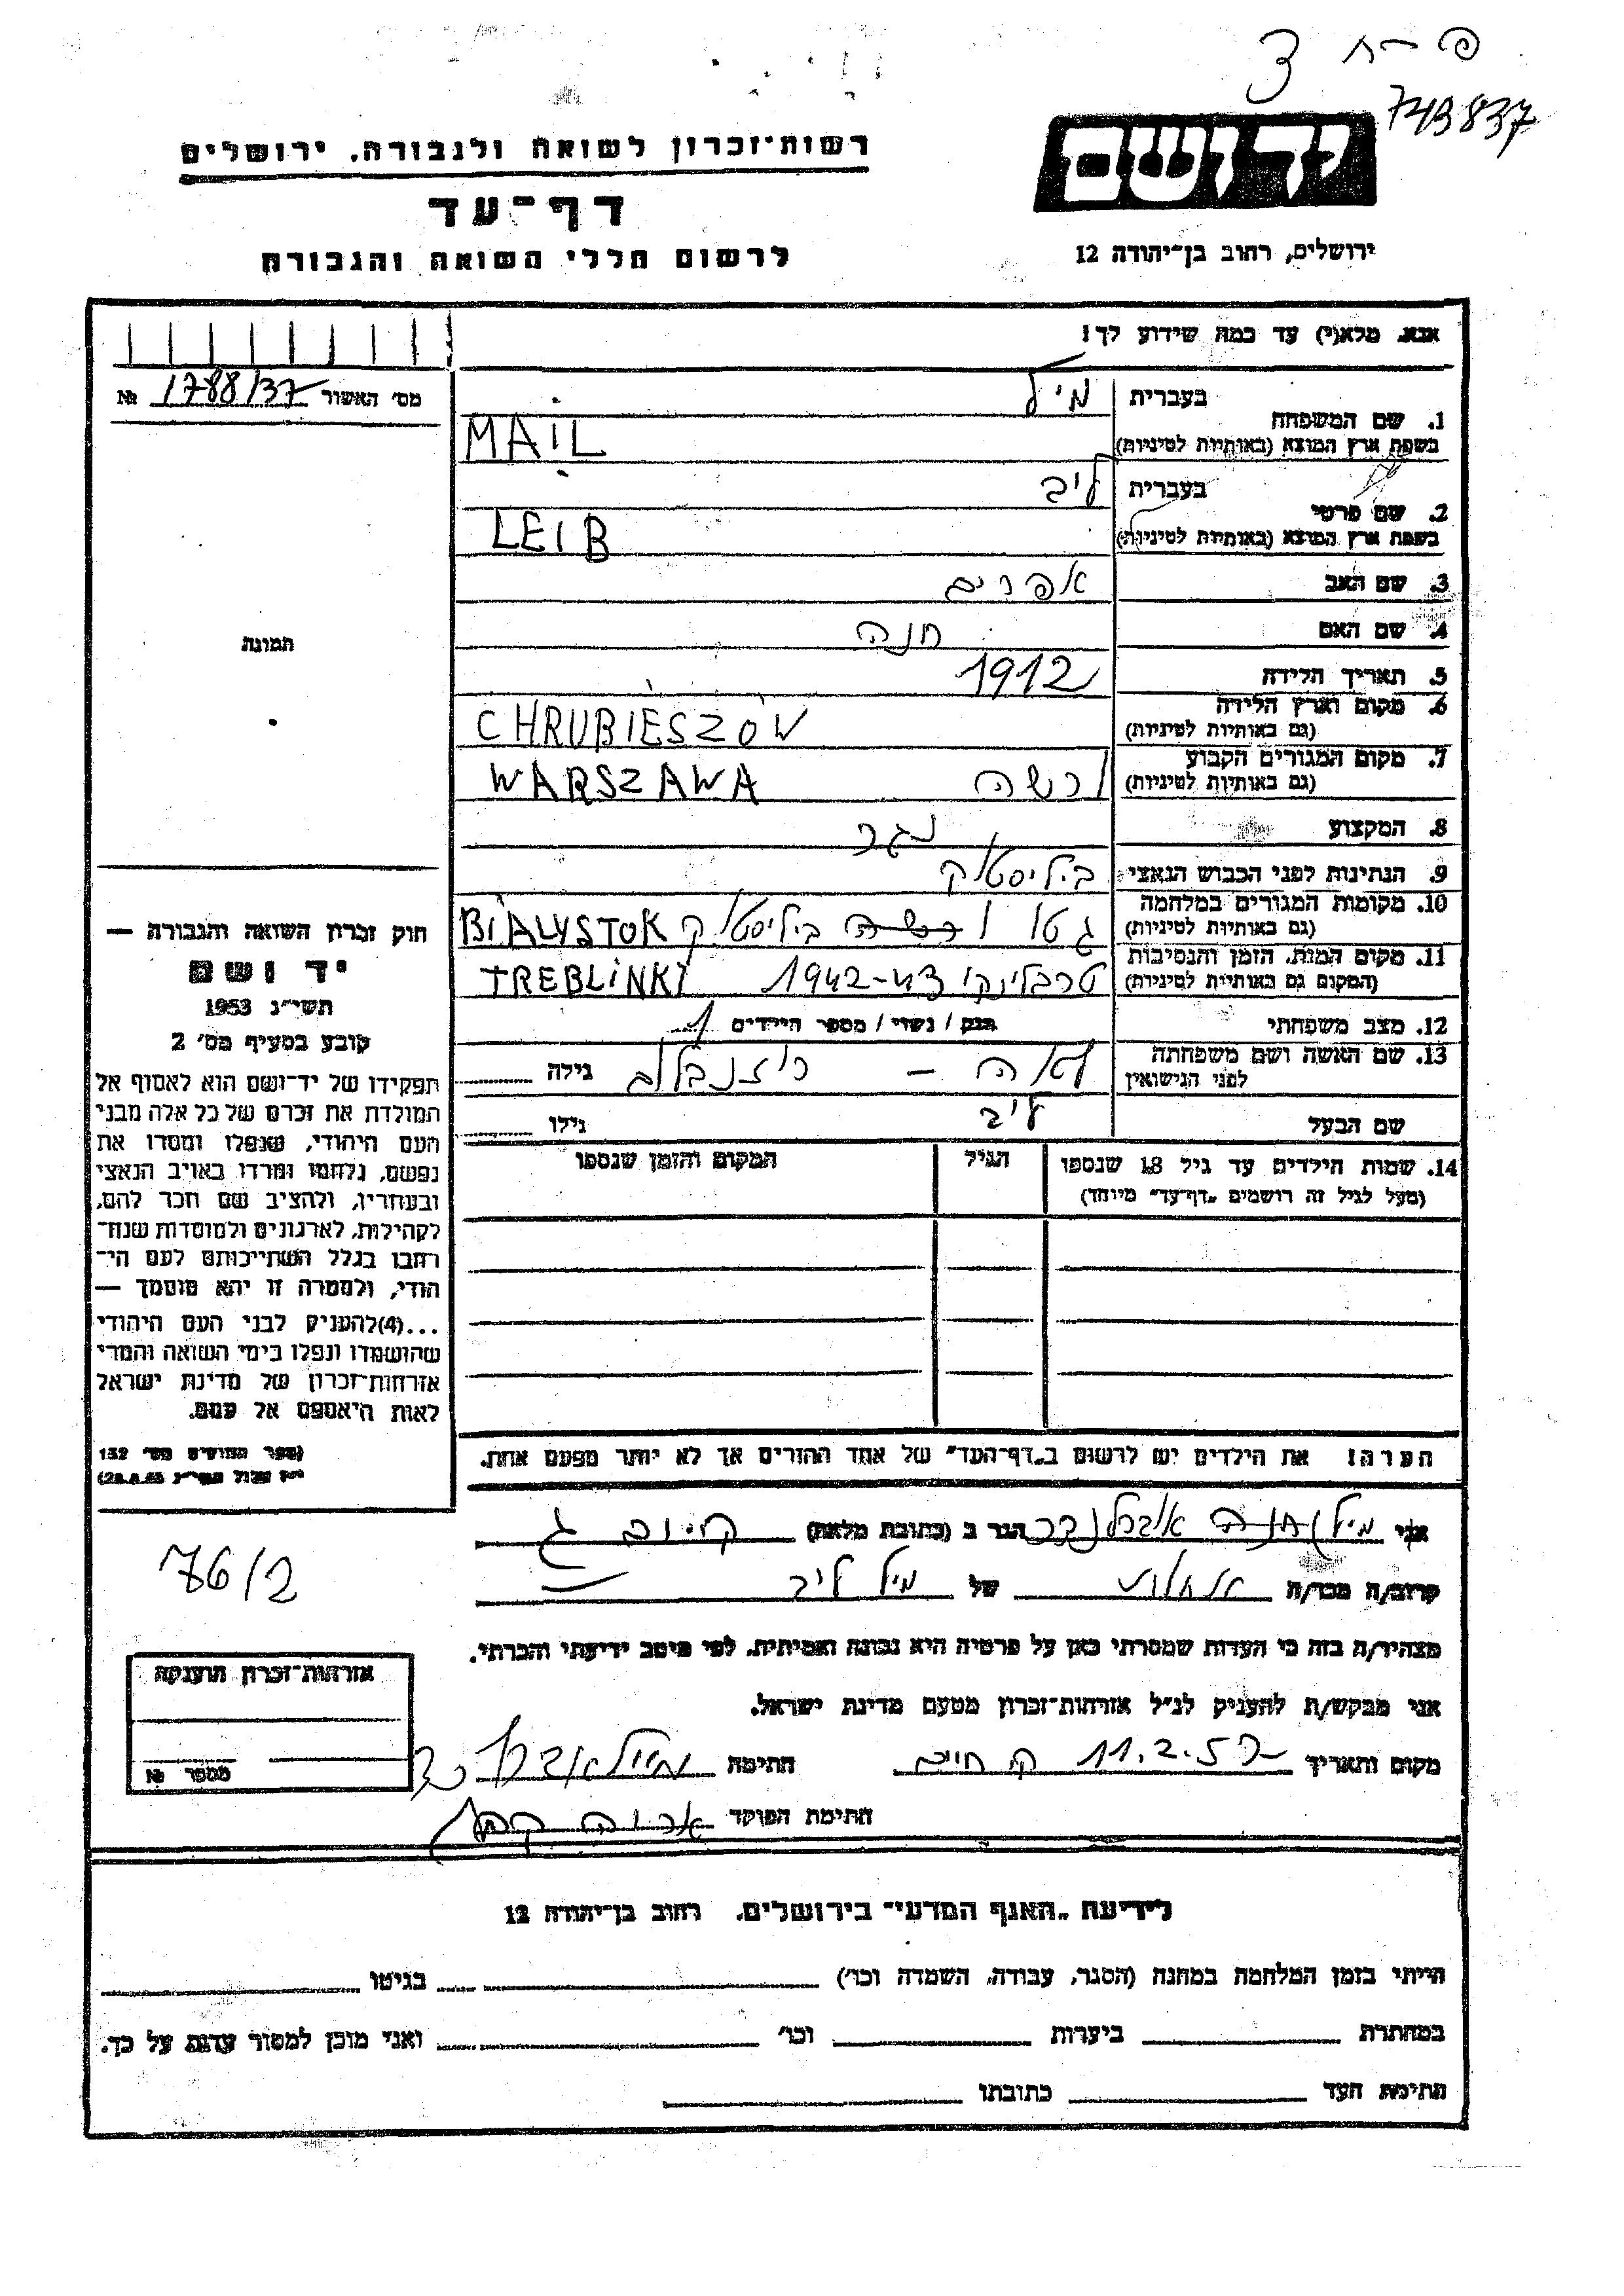 743837
יד ושם
ירושלים, רחוב בן־יהודה 12
רשות־זכרון לשואה ולגבורה, ירושלים
דף־עד
לרשום חללי השואה והגבורה
אנא, מלא(י) עד כמה שידוע לך!
מס׳ האשור 1788/37 №
1. שם המשפחה
בעברית מיל
בשפת ארץ המוצא (באותיות לטיניות) MAIL
2. שם פרטי
בעברית ליב
בשפת ארץ המוצא (באותיות לטיניות) LEIB
3. שם האב אפרים
4. שם האם חנה
5. תאריך הלידה 1912
6. מקום וארץ הלידה
(גם באותיות לטיניות) CHRUBIESZÓW
7. מקום המגורים הקבוע
(גם באותיות לטיניות) ורשה WARSZAWA
8. המקצוע נגר
9. הנתינות לפני הכבוש הנאצי ביליסטוק
10. מקומות המגורים במלחמה
(גם באותיות לטיניות) גטו ורשה ביליסטוק BIALYSTOK
11. מקום המות, הזמן והנסיבות
(המקום גם באותיות לטיניות) טרבלינקי 1942-43 TREBLINKI
12. מצב משפחתי רוק / נשוי / מספר הילדים 1
13. שם האשה ושם משפחתה
לפני הנישואין לאה – רוזנבלום גילה
שם הבעל ליב גילו
14. שמות הילדים עד גיל 18 שנספו
(מעל לגיל זה רושמים „דף־עד״ מיוחד)
הגיל
המקום והזמן שנספו
הערה! את הילדים יש לרשום ב„דף־העד״ של אחד ההורים אך לא יותר מפעם אחת.
תמונה
חוק זכרון השואה והגבורה —
יד ושם
תשי״ג 1953
קובע בסעיף מס׳ 2
תפקידו של יד־ושם הוא לאסוף אל
המולדת את זכרם של כל אלה מבני
העם היהודי, שנפלו ומסרו את
נפשם, נלחמו ומרדו באויב הנאצי
ובעוזריו, ולהציב שם וזכר להם,
לקהילות, לארגונים ולמוסדות שנח־
רבו בגלל השתייכותם לעם הי־
הודי, ולמטרה זו יהא מוסמך —
...(4)להעניק לבני העם היהודי
שהושמדו ונפלו בימי השואה והמרי
אזרחות־זכרון של מדינת ישראל
לאות היאספם אל עמם.
(ספר החוקים מס׳ 132
76/2
אני מיל חנה הגר ב (כתובת מלאה) ק חיים ג
קרוב/ה מכר/ה של מיל ליב
מצהיר/ה בזה כי העדות שמסרתי כאן על פרטיה היא נכונה ואמיתית, לפי מיטב ידיעתי והכרתי.
אני מבקש/ת להעניק לנ״ל אזרחות־זכרון מטעם מדינת ישראל.
מקום ותאריך 11.2.57 ק חיים חתימה
חתימת הפוקד
אזרחות־זכרון הוענקה
מספר №
לידיעת „האגף המדעי״ בירושלים, רחוב בן־יהודה 12
הייתי בזמן המלחמה במחנה (הסגר, עבודה, השמדה וכו׳) בגיטו
במחתרת ביערות וכו׳ ואני מוכן למסור עדות על כך.
חתימת העד כתובתו